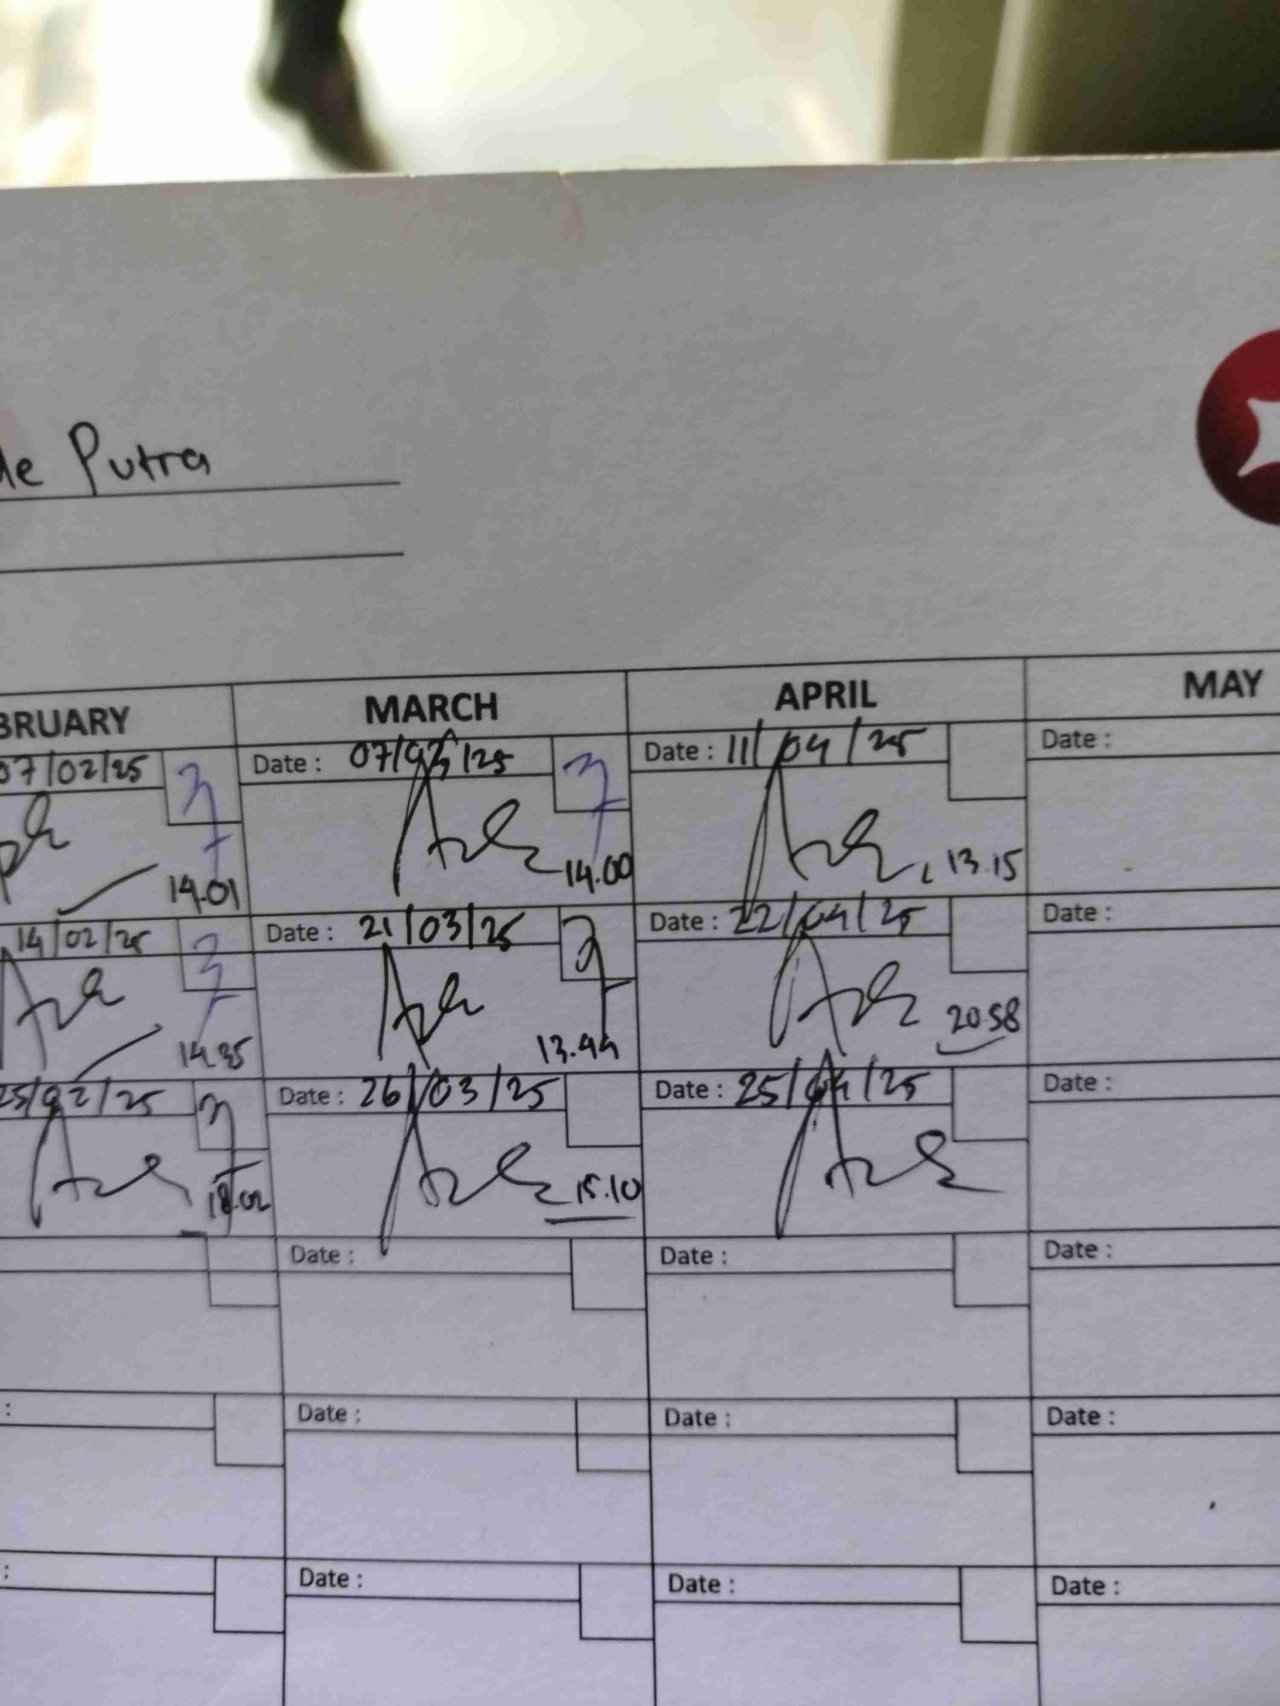 de Putra
BRUARY MARCH APRIL MAY
07/02/25 Date : 07/03/25 Date : 11/04/25 Date :
14.01 14.00 13.15
14/02/25 Date : 21/03/25 Date : 22/04/25 Date :
14.35 13.44 20.58
25/02/25 Date : 26/03/25 Date : 25/04/25 Date :
18.02 15.10
Date : Date : Date :
: Date : Date : Date :
: Date : Date : Date :